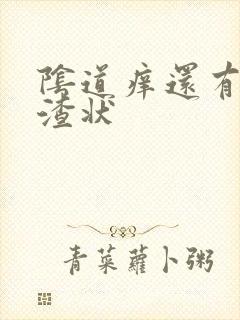 陰道痒還有
渣状
青菜蘿卜粥